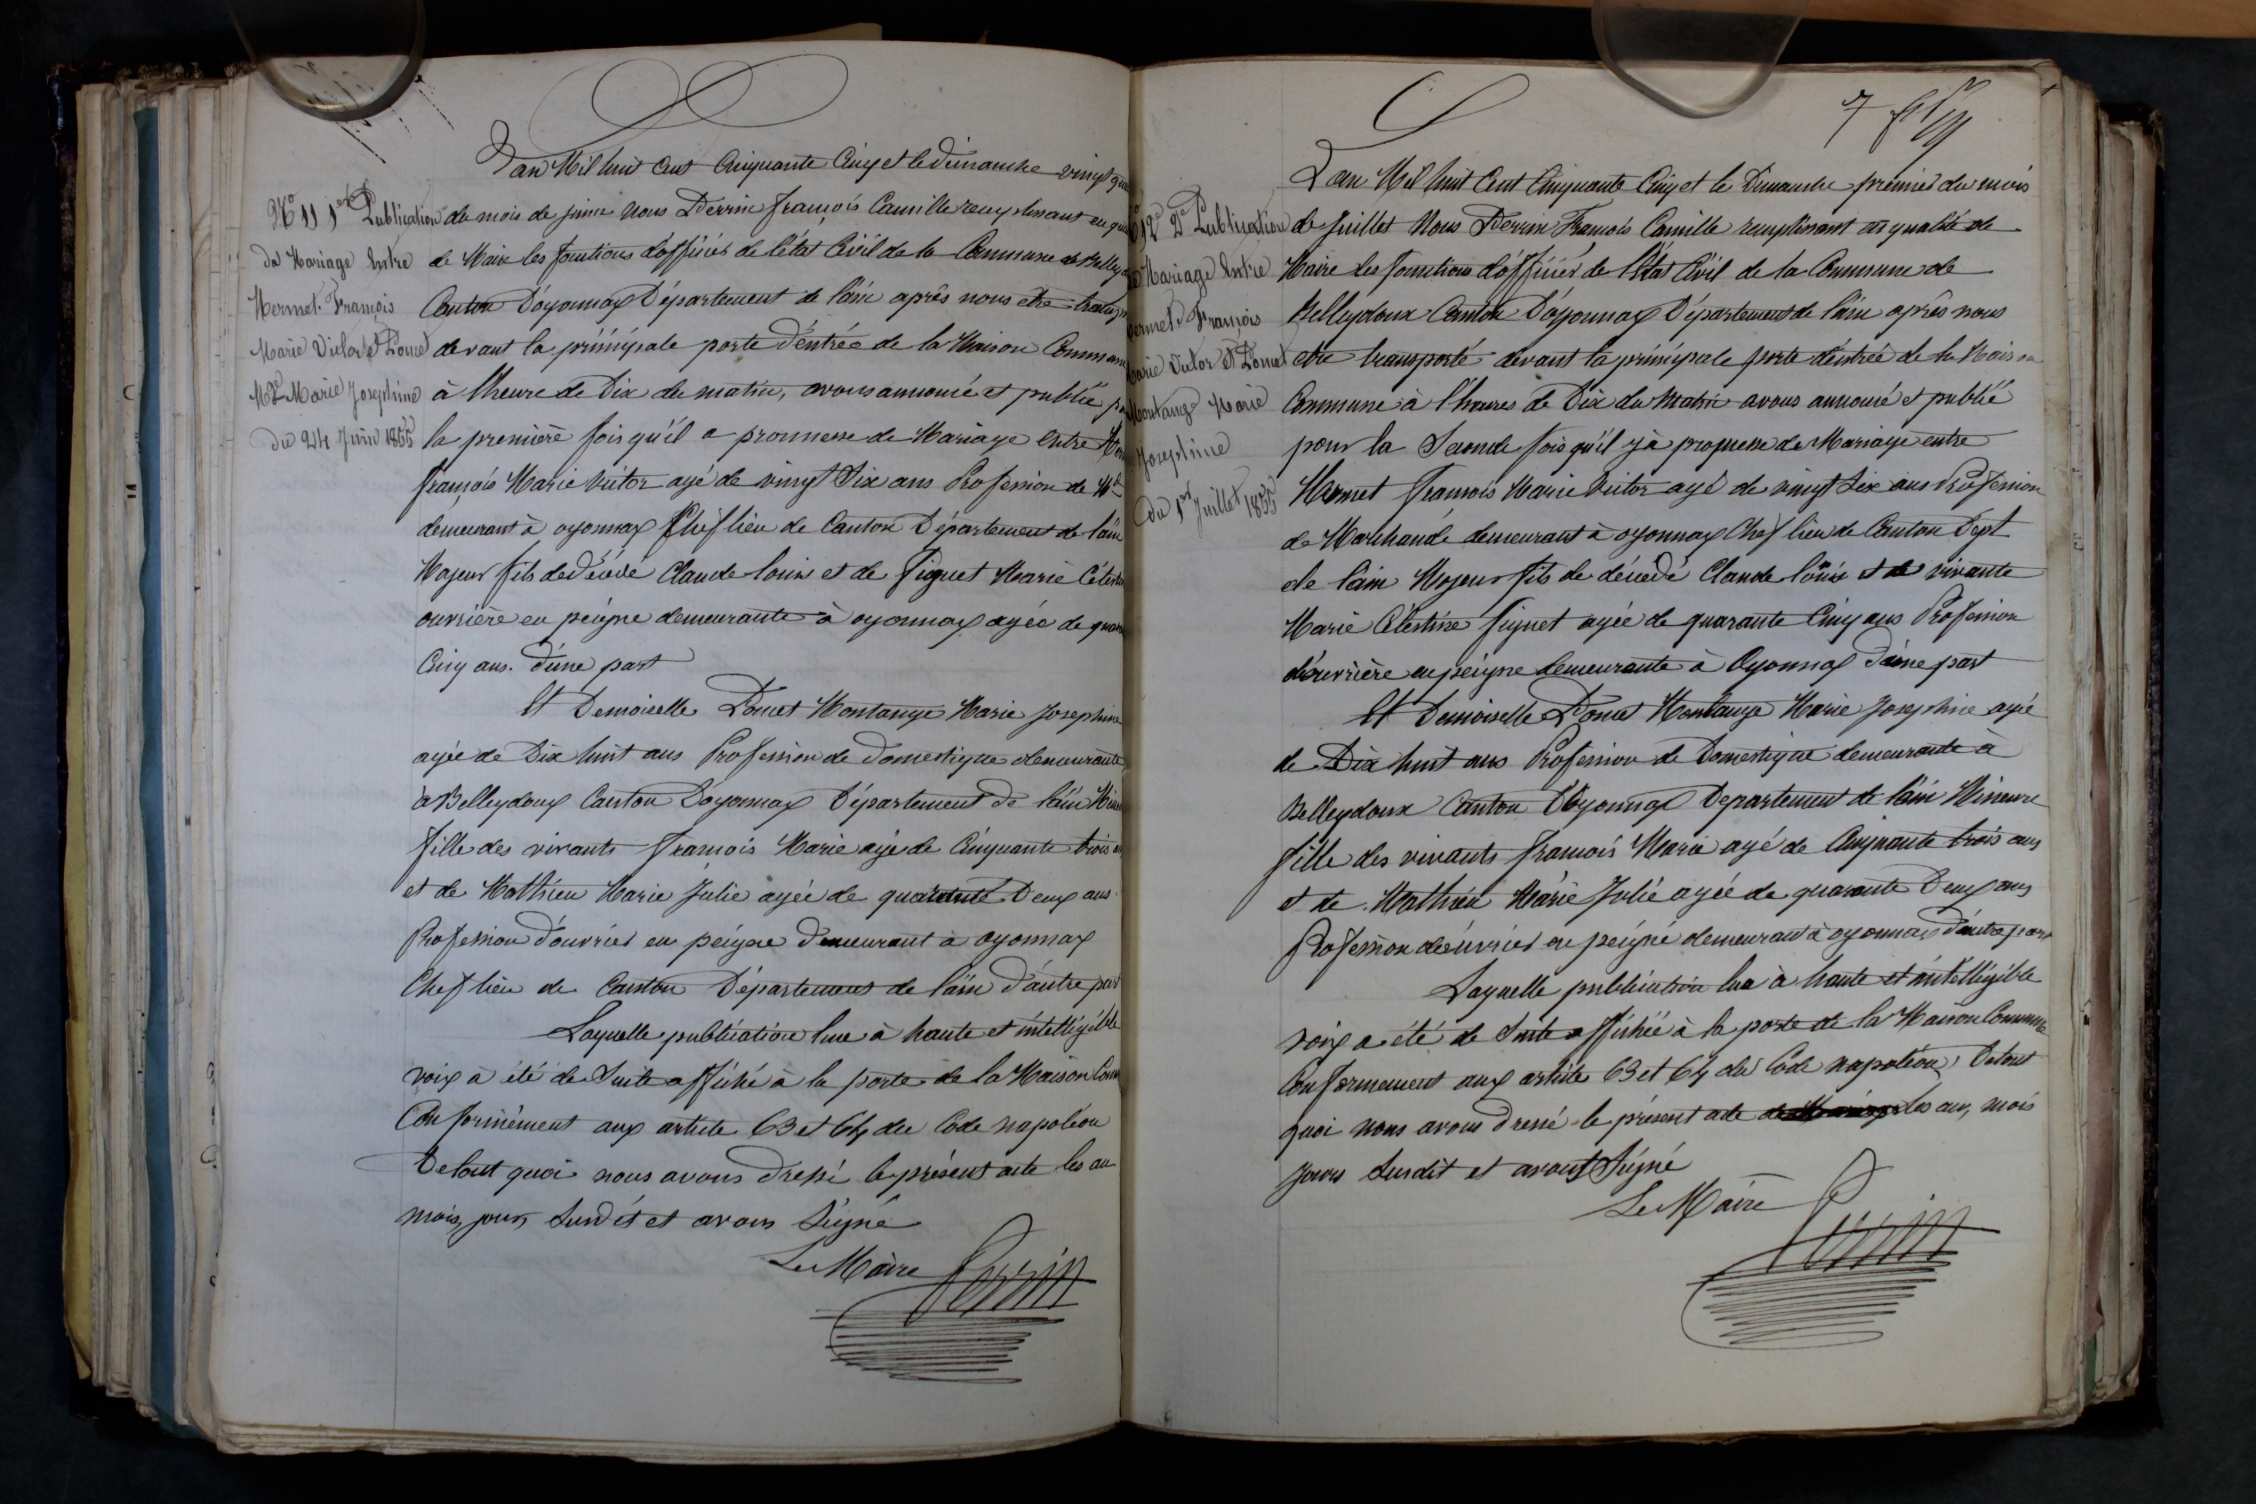 N° 11 1ère Publication
de Mariage Entre
Mermet François
Marie Victor et Poncet
Mge Marie Josephine
du 24 Juin 1855
L'an Mil huit Cent Cinquante Cinq et le dimanche vingt qua
du mois de juin Nous Perrin françois Camille remplissant en qua
de Maire les fonctions d'officier de l'état Civil de la Commune de Belleydo
Canton D'oyonnax Département de l'ain après nous être transp
devant la principale porte d'entrée de la Maison Commune
à l'heure de Dix du matin, avons annoncé et publié po
la première fois qu'il a promesse de Mariage entre Mer
françois Marie Victor agé de vingt Six ans Profession de Md
demeurant à oyonnax Chef lieu de Canton Département de l'ain
Majeur fils de décédé Claude louis et de Piquet Marie Célest
ouvrière en peigne demeurante à oyonnax agée de quara
Cinq ans. d'une part
Et Demoiselle Poncet Montange Marie Josephine
agée de Dix huit ans Profession de domestique demeurante
à Belleydoux Canton D'oyonnax Département de l'ain Min
fille des vivants françois Marie agé de Cinquante trois a
et de Mathieu Marie Julie agée de quarante Deux ans
Profession d'ouvrier en peigne demeurant à oyonnax
Chef lieu de Canton Département de l'ain d'autre part
Laquelle publication lue à haute et intelligible
voix à été de Suite affiché à la porte de la Maison Com
Conformément aux article 63 et 64 du Code napoléon
De tout quoi nous avons dressé le présent acte les an
mois, jour, Susdit et avons Signé
Le Maire Perrin
7
N° 12 2e Publication
de Mariage Entre
Mermet François
Marie Victor et Poncet
Montange Marie
Josephine
du 1er Juillet 1855
L'an Mil huit Cent Cinquante Cinq et le Dimanche premier du mois
de Juillet Nous Perrin François Camille remplissant en qualité de
Maire les fonctions d'officier de l'État Civil de la Commune de
Belleydoux Canton D'oyonnax Département de l'ain après nous
être transporté devant la principale porte d'entrée de la Maison
Commune à l'heures de Dix du Matin avons annoncé et publié
pour la Seconde fois qu'il y à promesse de Mariage entre
Mermet François Marie Victor agé de vingt Six ans Profession
de Marchand demeurant à oyonnax Chef lieu de Canton Dépt
de l'ain Majeur fils de décédé Claude louis et de vivante
Marie Célestine Piquet agée de quarante Cinq ans Profession
d'ouvrière en peigne demeurante à Oyonnax d'une part
Et Demoiselle Poncet Montange Marie Josephine agée
de Dix huit ans Profession de Domestique demeurante à
Belleydoux Canton D'Oyonnax Departement de l'ain Mineure
fille des vivants François Marie agé de Cinquante trois ans
et de Mathieu Marie Julie agée de quarante Deux ans
Profession d'ouvrier en peigne demeurant à oyonnax d'autre part
Laquelle publication lue à haute et intelligible
voix a été de Suite affichée à la porte de la Maison Commune
Conformement aux article 63 et 64 du Code napoléon, De tout
quoi nous avons dressé le présent acte les an, mois
jours Susdit et avons Signé
Le Maire Perrin